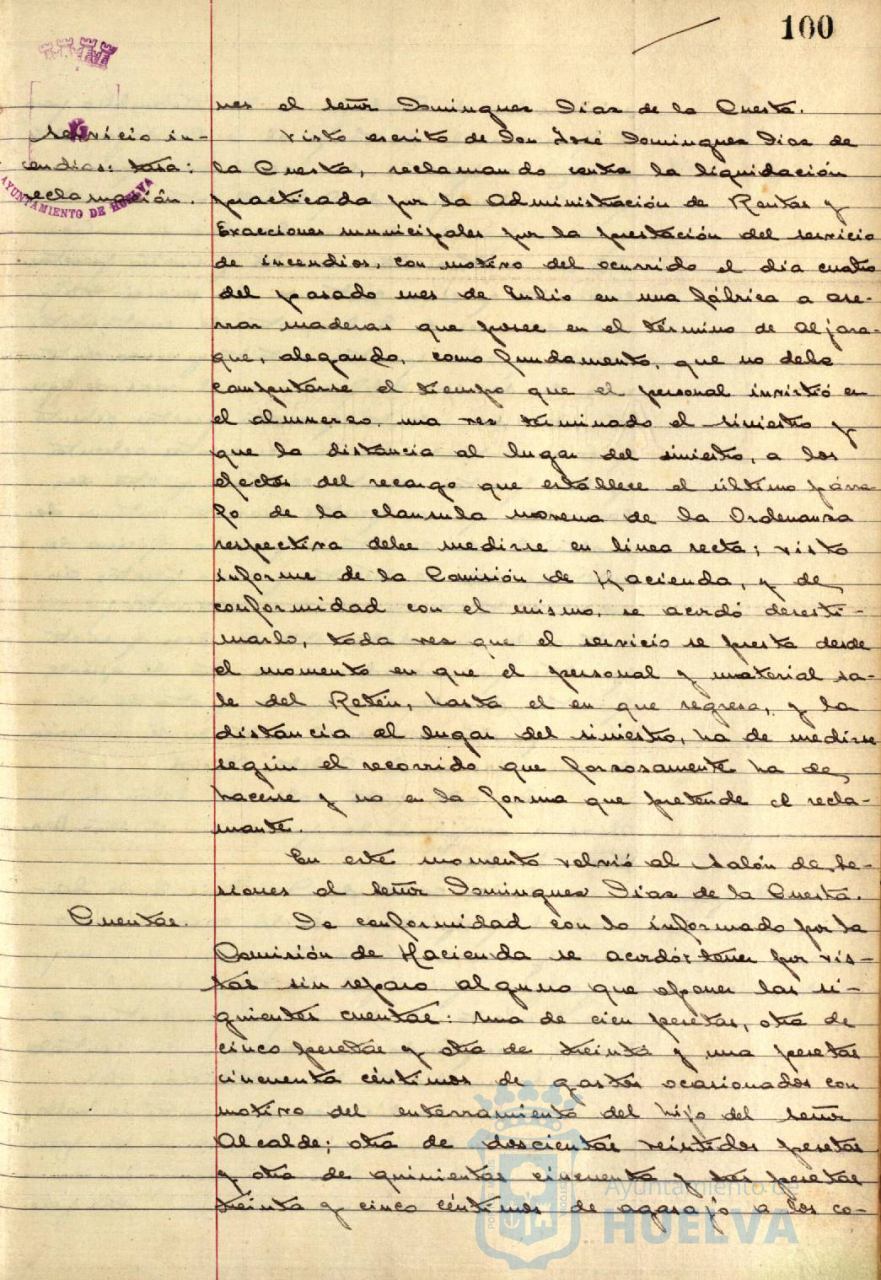 100
nes el señor Dominguez Diaz de la Cuesta.
Servicio in-
cendios: tasa:
reclamación.
AYUNTAMIENTO DE HUELVA
Visto escrito de Don José Dominguez Diaz de
la Cuesta, reclamando contra la liquidación
practicada por la Administración de Rentas y
Exacciones municipales por la prestación del servicio
de incendios, con motivo del ocurrido el dia cuatro
del pasado mes de Julio en una fábrica a ase-
rrar maderas que posee en el término de Aljara-
que, alegando, como fundamento, que no debe
computarse el tiempo que el personal invirtió en
el almuerzo, una vez terminado el siniestro y
que la distancia al lugar del siniestro, a los
efectos del recargo que establece el último párra-
fo de la clausula novena de la Ordenanza
respectiva debe medirse en linea recta; visto
informe de la Comisión de Hacienda, y de
conformidad con el mismo, se acordó desesti-
marlo, toda vez que el servicio se presta desde
el momento en que el personal y material sa-
le del Retén, hasta el en que regresa, y la
distancia al lugar del siniestro, ha de medirse
según el recorrido que forzosamente ha de
hacerse y no en la forma que pretende el recla-
mante.
En este momento volvió al Salón de Se-
siones el señor Dominguez Diaz de la Cuesta.
Cuentas.
De conformidad con lo informado por la
Comisión de Hacienda se acordó: tener por vis-
tas sin reparo alguno que oponer las si-
guientes cuentas: una de cien pesetas, otra de
cinco pesetas y otra de treinta y una pesetas
cincuenta céntimos de gastos ocasionados con
motivo del enterramiento del hijo del señor
Alcalde; otra de doscientas veintidos pesetas
y otra de quinientas cincuenta y tres pesetas
treinta y cinco céntimos de agasajo a los co-
Ayuntamiento de
HUELVA